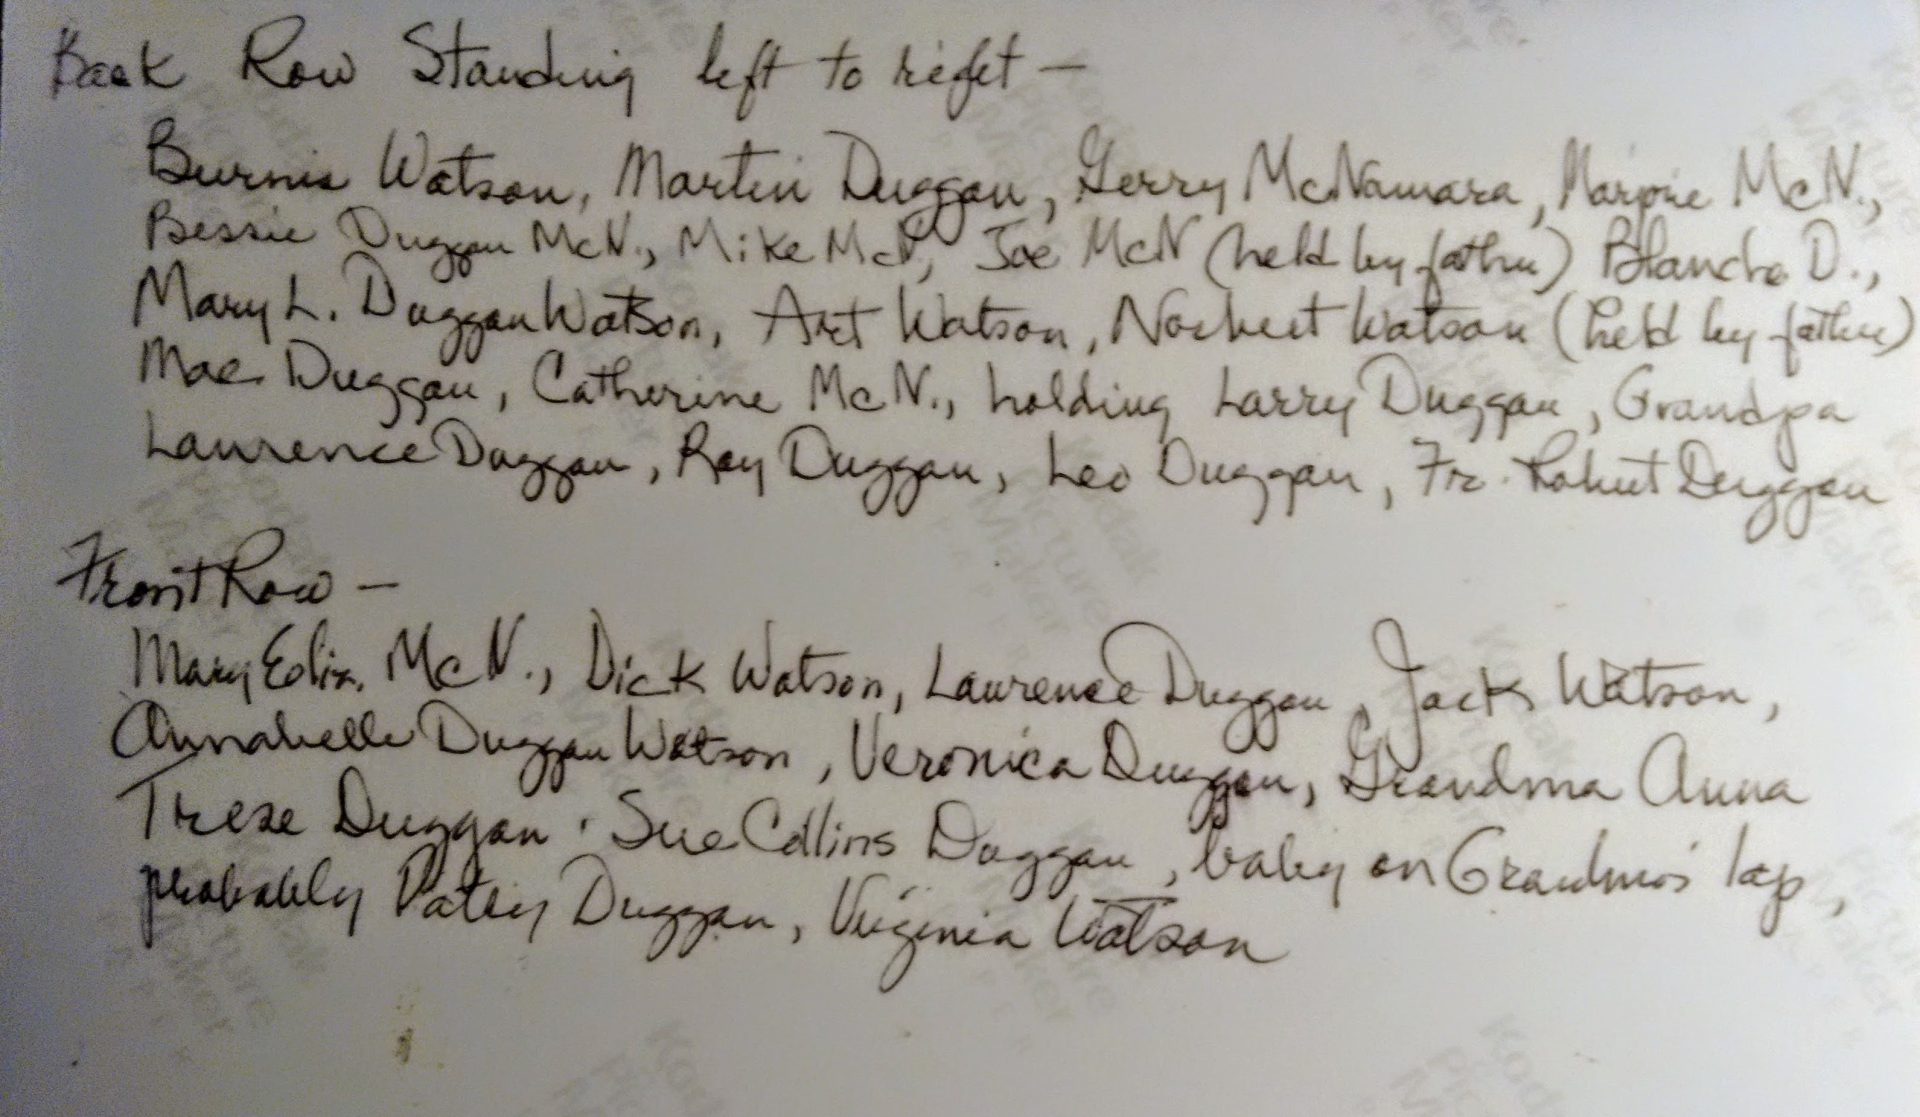 Back Row Standing left to right —
Burnis Watson, Martin Duggan, Gerry McNamara, Marjorie McN.,
Bessie Duggan McN., Mike McN, Joe McN (held by father) Blanche D.,
Mary L. Duggan Watson, Art Watson, Norbert Watson (held by father)
Mae Duggan, Catherine McN., holding Larry Duggan, Grandpa
Laurence Duggan, Ray Duggan, Leo Duggan, Fr. Robert Duggan
Front Row —
Mary Eliz. McN., Dick Watson, Laurence Duggan, Jack Watson,
Annabelle Duggan Watson, Veronica Duggan, Grandma Anna
Trese Duggan, Sue Collins Duggan, baby on Grandma's lap,
probably Patsy Duggan, Virginia Watson
Kodak
Picture
Maker